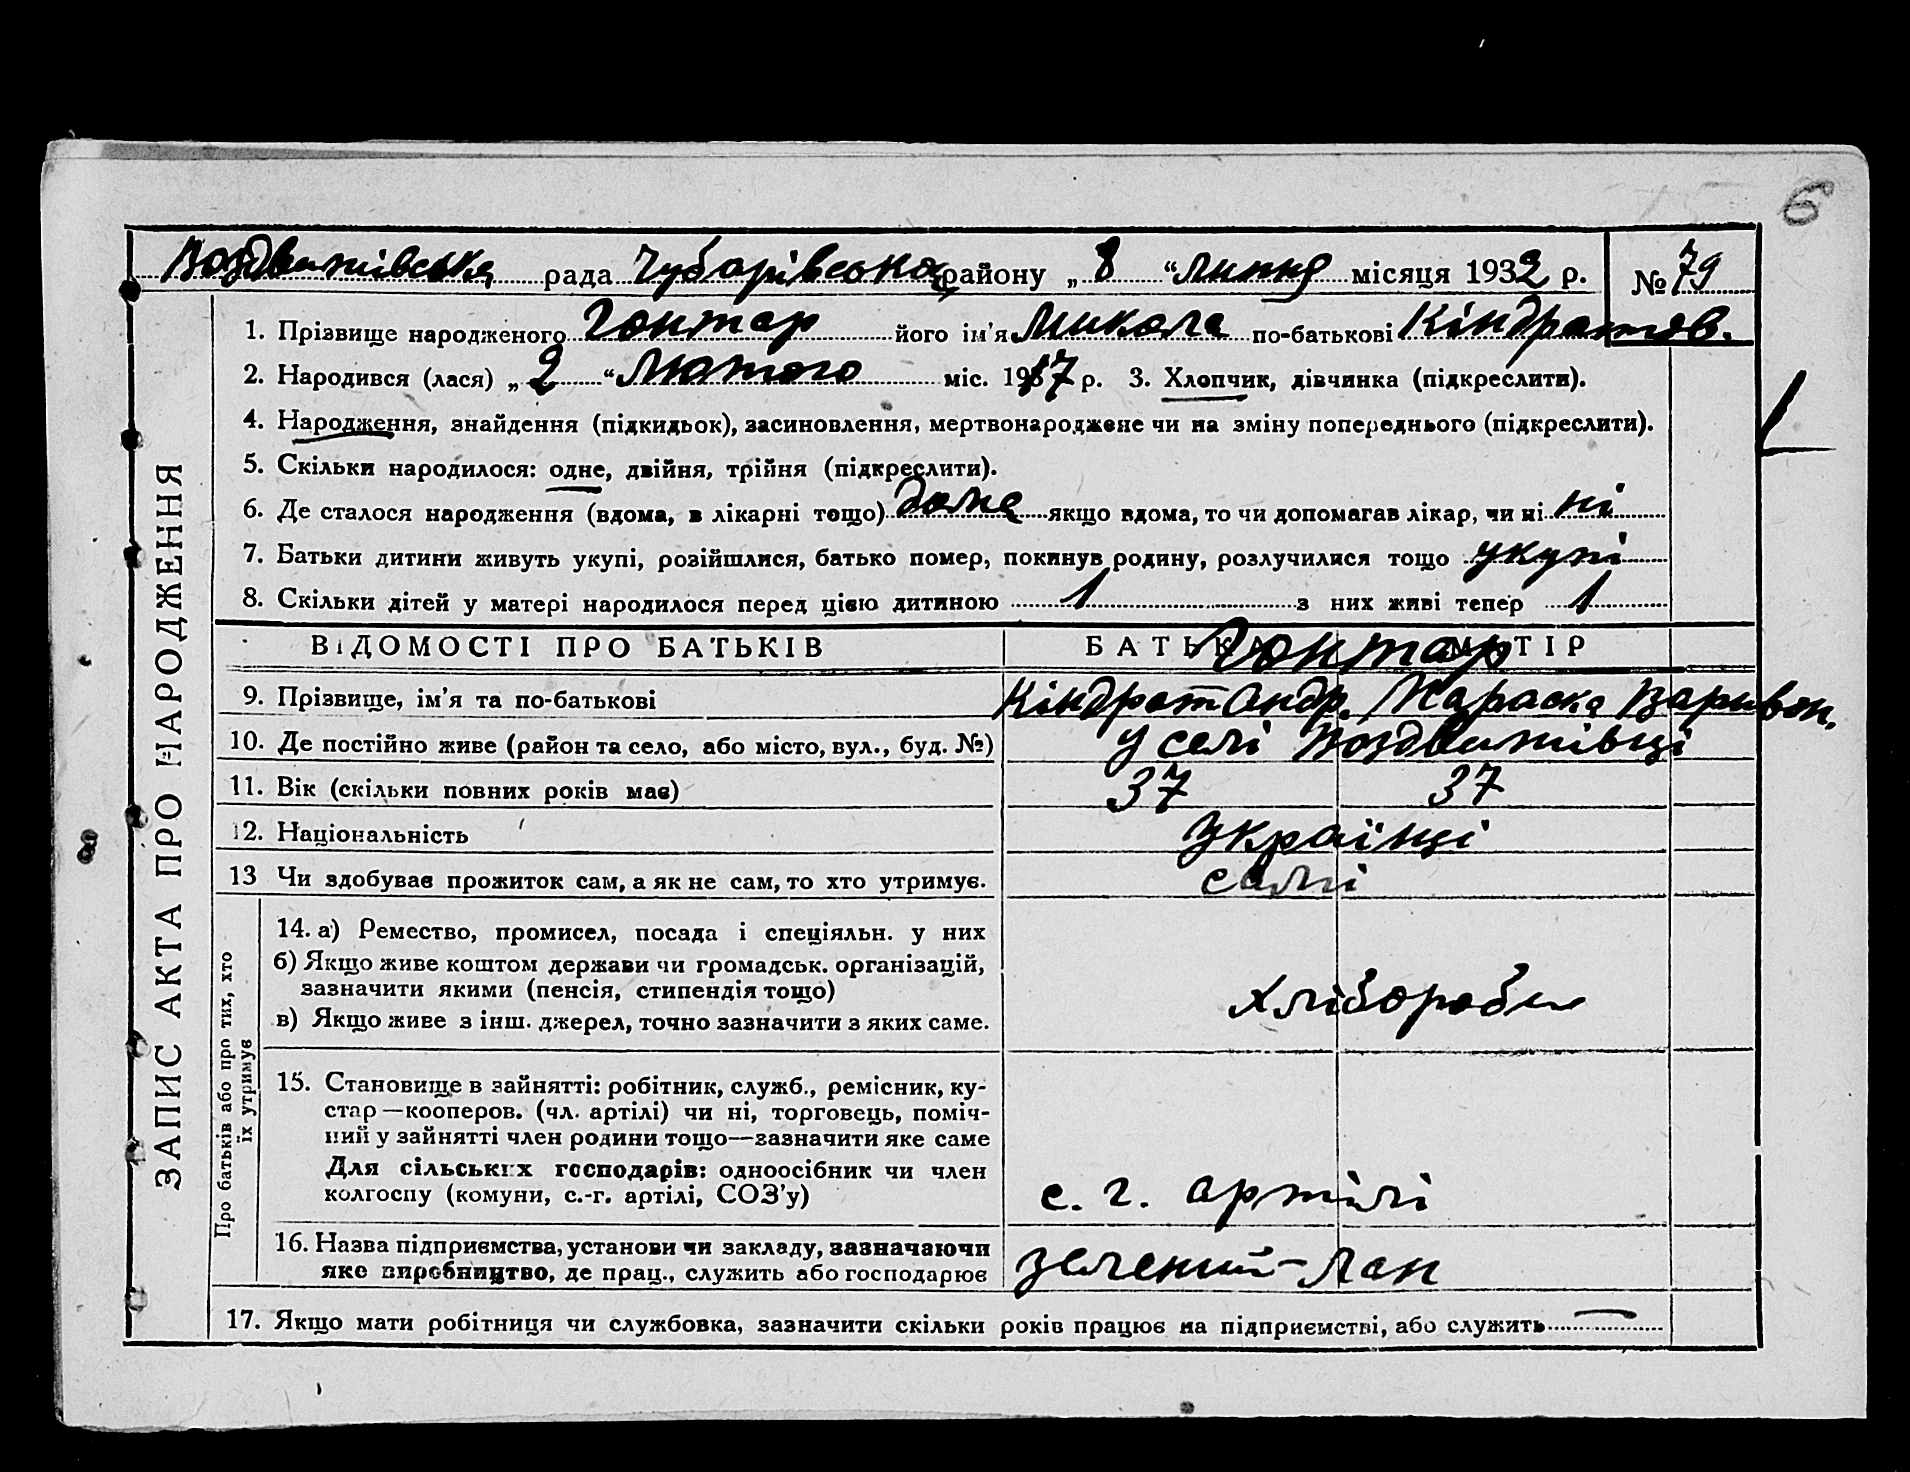 6
Воздвижівська рада Чубарівського району „ 8 “ липня місяця 1932 р. № 79
1. Прізвище народженого Гонтар його ім'я Микола по-батькові Кіндратов.
2. Народився (лася) „ 2 “ Лютого міс. 1917 р. 3. Хлопчик, дівчинка (підкреслити).
4. Народження, знайдення (підкидьок), засиновлення, мертвонароджене чи на зміну попереднього (підкреслити).
5. Скільки народилося: одне, двійня, трійня (підкреслити).
6. Де сталося народження (вдома, в лікарні тощо) дома якщо вдома, то чи допомагав лікар, чи ні ні
7. Батьки дитини живуть укупі, розійшлися, батько помер, покинув родину, розлучилися тощо укупі
8. Скільки дітей у матері народилося перед цією дитиною 1 з них живі тепер 1
ВІДОМОСТІ ПРО БАТЬКІВ БАТЬКО МАТІР
Гонтар
9. Прізвище, ім'я та по-батькові Кіндрат Андр. Параска Варивон.
10. Де постійно живе (район та село, або місто, вул., буд. №) у селі Воздвижівці
11. Вік (скільки повних років має) 37 37
12. Національність Українці
13 Чи здобуває прожиток сам, а як не сам, то хто утримує. самі
14. а) Ремество, промисел, посада і спеціяльн. у них
б) Якщо живе коштом держави чи громадськ. організацій,
зазначити якими (пенсія, стипендія тощо)
хлібороби
в) Якщо живе з інш. джерел, точно зазначити з яких саме.
15. Становище в зайнятті: робітник, служб., ремісник, ку-
стар—кооперов. (чл. артілі) чи ні, торговець, поміч-
ний у зайнятті член родини тощо—зазначити яке саме
Для сільських господарів: одноосібник чи член
колгоспу (комуни, с.-г. артілі, СОЗ'у) с. г. артілі
16. Назва підприємства, установи чи закладу, зазначаючи
яке виробництво, де прац., служить або господарює зелений-Лан
17. Якщо мати робітниця чи службовка, зазначити скільки років працює на підприємстві, або служить —
ЗАПИС АКТА ПРО НАРОДЖЕННЯ
Про батьків або про тих, хто
їх утримує